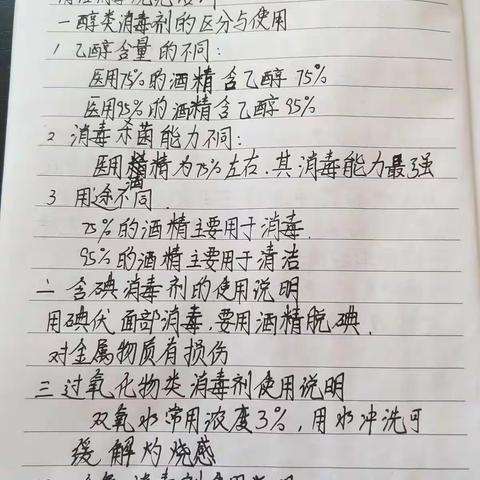 一醇类消毒剂的区分与使用
1 乙醇含量的不同:
医用75%的酒精含乙醇 75%
医用95%的酒精含乙醇 95%
2 消毒杀菌能力不同:
医用酒精为75%左右,其消毒能力最强
3 用途不同.
75%的酒精主要用于消毒.
95%的酒精主要用于清洁
二 含碘消毒剂的使用说明
用碘伏面部消毒,要用酒精脱碘.
对金属物质有损伤
三 过氧化物类消毒剂使用说明
双氧水常用浓度3%,用水冲洗可
缓解灼烧感